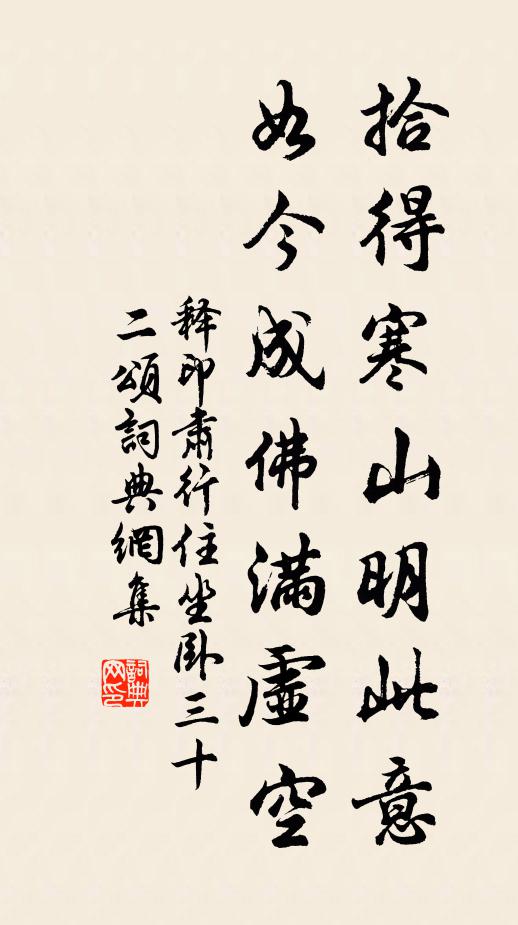 拾得寒山明此意
如今成佛滿虛空
释印肅行住坐卧三十
二頌詞典網集
詞典网印